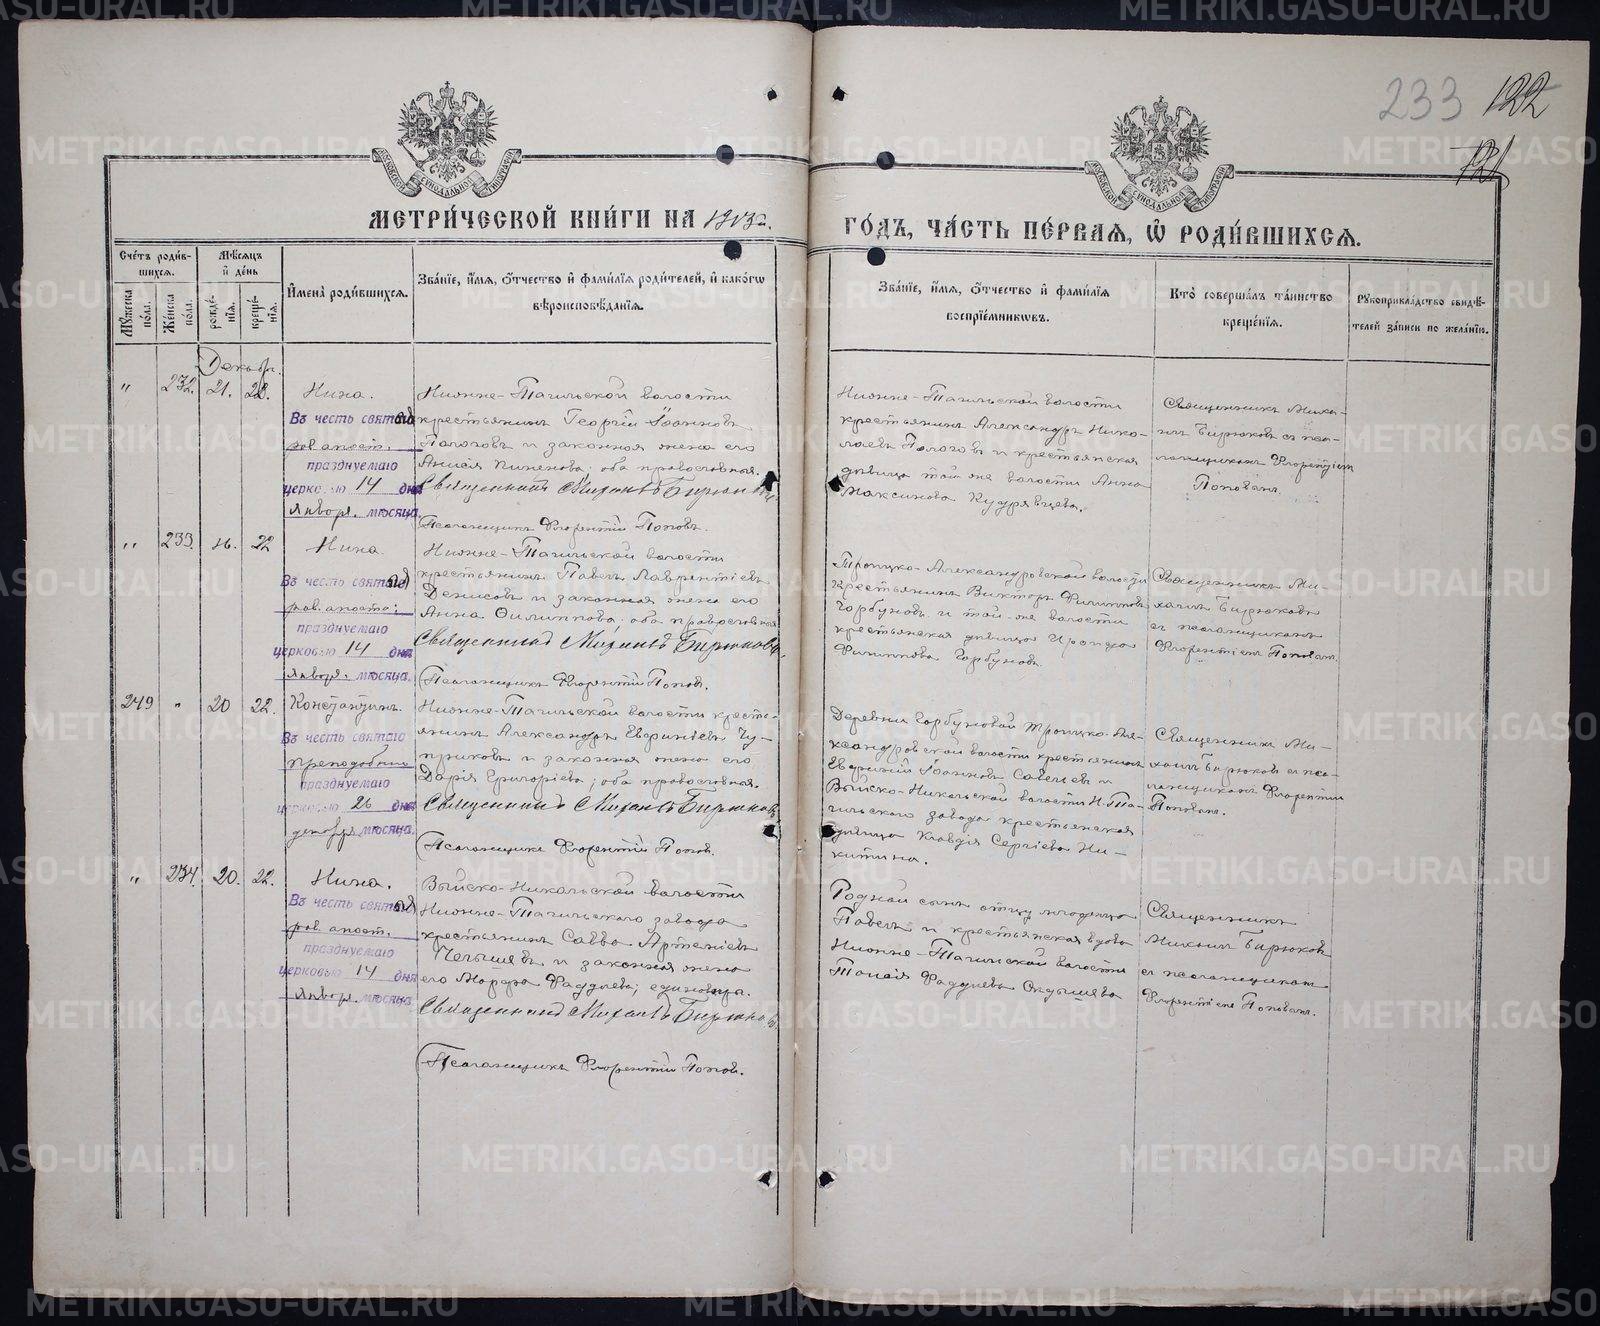 METRIKI.GASO-URAL.RU
233 122
121
МОСКОВСКОЙ СѴНОДАЛЬНОЙ ТИПОГРАФІИ
МОСКОВСКОЙ СѴНОДАЛЬНОЙ ТИПОГРАФІИ
МЕТРИ́ЧЕСКОЙ КНИ́ГИ НА 1913 г.
ГО́ДЪ, ЧА́СТЬ ПЕ́РВАЯ, Ѽ РОДИ́ВШИХСЯ.
Сче́тъ роди́вшихся.
Мѣ́сяцъ и҆ де́нь
Му́жеска по́ла.
Же́нска по́ла.
рожде́нїя.
креще́нїя.
И҆мена̀ роди́вшихся.
Зва́нїе, и҆́мя, ѻ҆́тчество и҆ фами́лїя роди́телей, и҆ како́гѡ
вѣроисповѣ́данїя.
Зва́нїе, и҆́мя, ѻ҆́тчество и҆ фами́лїя
воспрїе́мникѡвъ.
Кто̀ соверша́лъ та́инство
креще́нїя.
Рукоприкла́дство свидѣ́-
телей за́писи по жела́нїю.
Декабр.
" 232. 21. 22. Нина.
Въ честь святой
рав. апост.
празднуемаю
церковью 14 дня
января. мѣсяца.
Нижне-Тагильской волости
крестьянинъ Георгій Іоанновъ
Пологовъ и законная жена его
Анисія Пименова; оба православные.
Священникъ Михаилъ Бирюковъ
Псаломщикъ Флорентій Поповъ.
Нижне-Тагильской волости
крестьянинъ Александръ Нико-
лаевъ Пологовъ и крестьянская
дѣвица той же волости Анна
Максимова Кудрявцева.
Священникъ Миха-
илъ Бирюковъ съ пса-
ломщикомъ Флорентіемъ
Поповымъ.
" 233. 16. 22 Нина.
Въ честь святой
рав. апосто:
празднуемаю
церковью 14 дня
январ. мѣсяца.
Нижне-Тагильской волости
крестьянинъ Павелъ Лаврентіевъ
Денисовъ и законная жена его
Анна Филиппова; оба православные
Священникъ Михаилъ Бирюковъ.
Псаломщикъ Флорентій Попов.
Троицко-Александровской волости
крестьянинъ Викторъ Филипповъ
Горбуновъ и той-же волости
крестьянская дѣвица Ираида
Филиппова Горбунова.
Священникъ Ми-
хаилъ Бирюковъ
съ псаломщикомъ
Флорентіемъ Поповымъ.
249 " 20 22. Константинъ.
Въ честь святаю
преподобнаго
празднуемаю
церковью 26 дня
декабря мѣсяца.
Нижне-Тагильской волости кресть-
янинъ Александръ Евфиміевъ Чу-
приковъ и законная жена его
Дарія Григоріева; оба православные.
Священникъ Михаилъ Бирюковъ
Псаломщикъ Флорентій Попов.
Деревни Горбуновой Троицко-Але-
ксандровской волости крестьянинъ
Евфимій Іоанновъ Савельевъ и
Выйско-Никольской волости Н-Та-
гильскаго завода крестьянская
дѣвица Клавдія Сергіева Ни-
китина.
Священникъ Ми-
хаилъ Бирюковъ съ пса-
ломщикомъ Флорентіемъ
Поповымъ.
" 234. 20. 22. Нина.
Въ честь святой
рав. апост.
празднуемаю
церковью 14 дня
январ. мѣсяца
Выйско-Никольской волости
Нижне-Тагильскаго завода
крестьянинъ Савва Артеміевъ
Челышевъ и законная жена
его Марфа Фаддѣева; единовѣры.
Священникъ Михаилъ Бирюковъ
Псаломщикъ Флорентій Попов.
Родной сынъ отцу младенца
Павелъ и крестьянская вдова
Нижне-Тагильской волости
Таисія Фаддѣева
Священникъ
Михаилъ Бирюковъ
съ псаломщикомъ
Флорентіемъ Поповымъ.